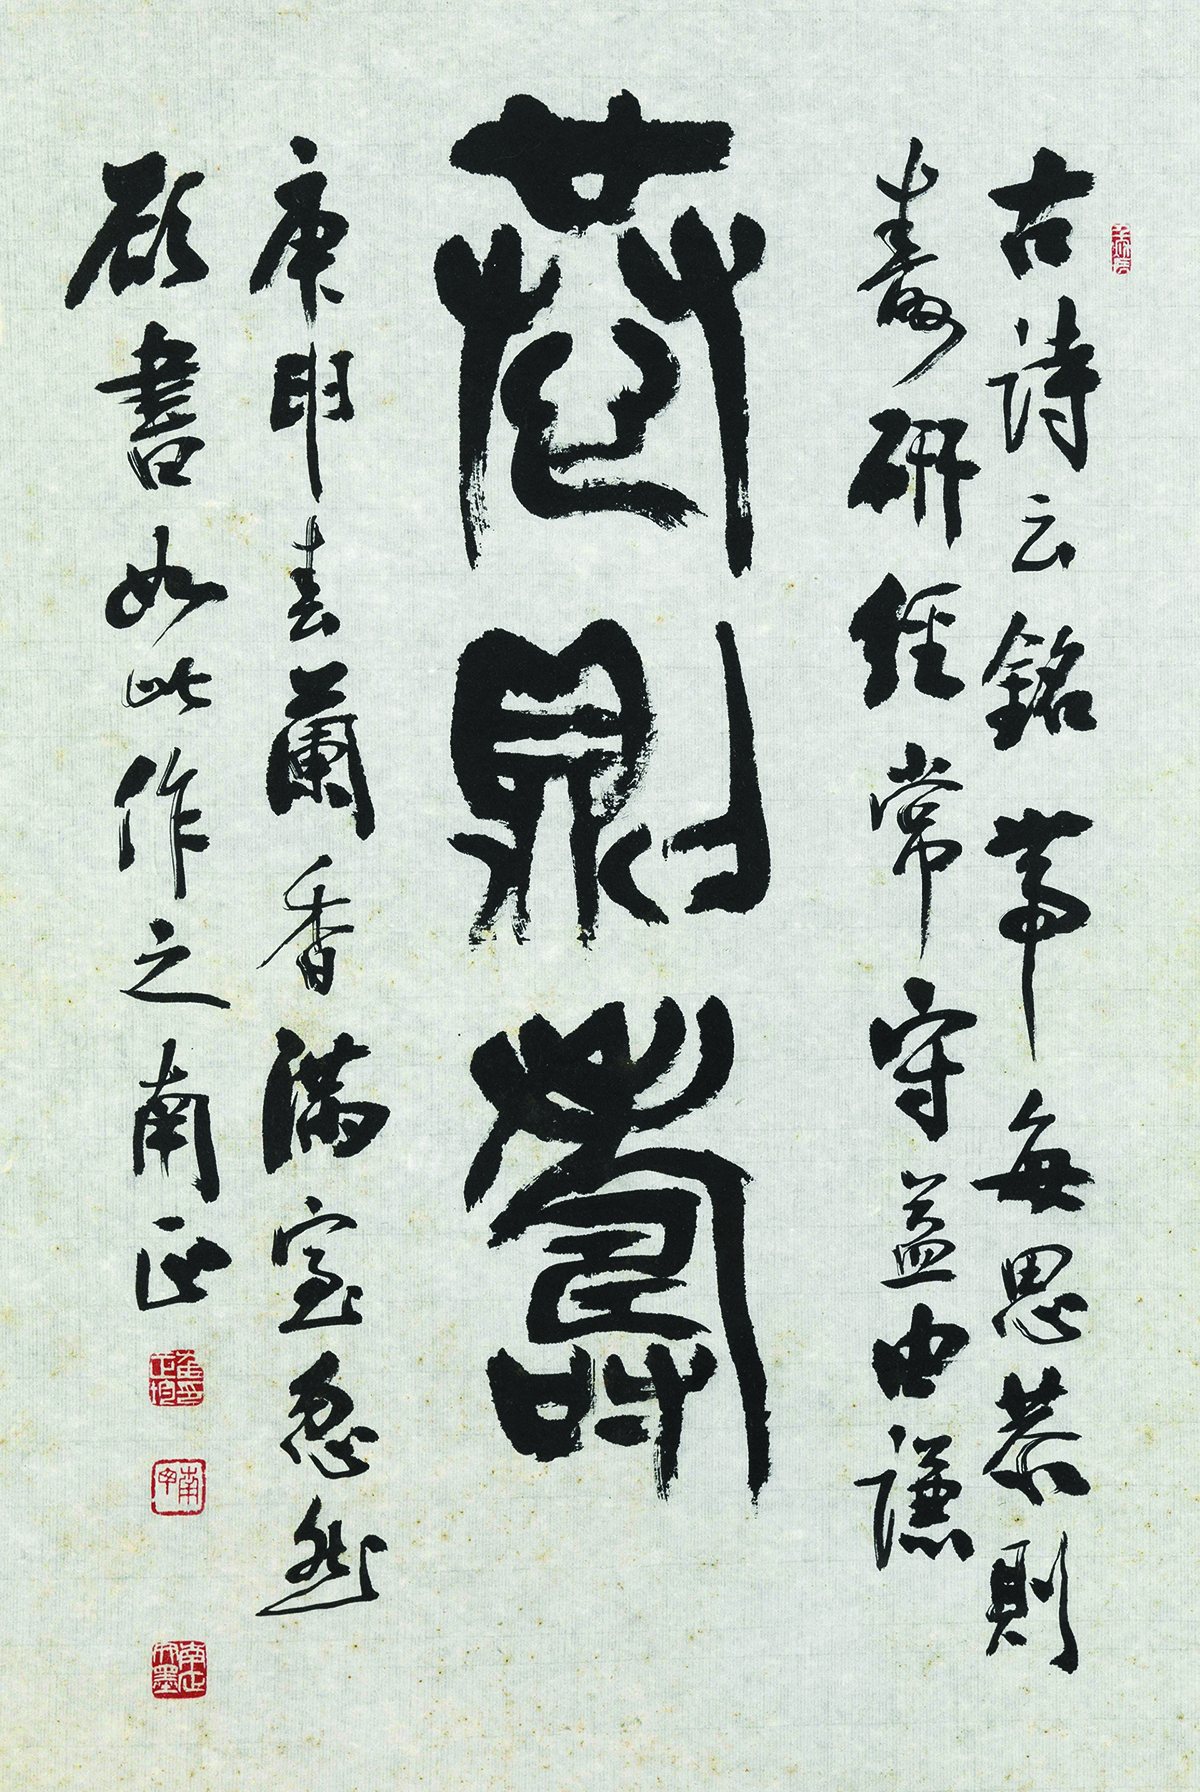 古詩云銘帶每思恭則
壽研經常守益由謙
恭則壽
庚申春蘭香滿室忽然
書如此作之南正